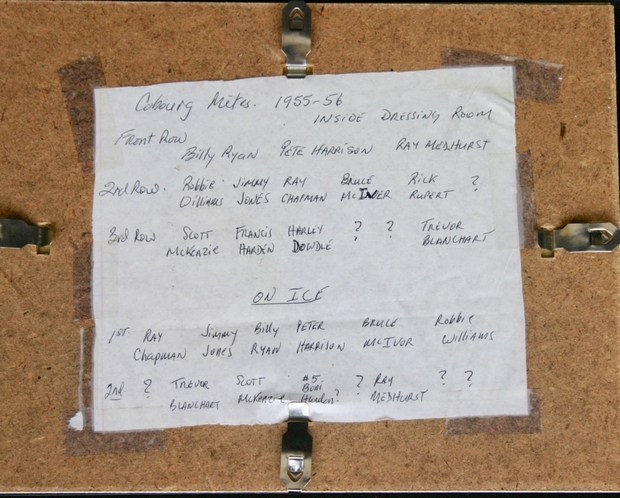 Cobourg Mites. 1955-56
INSIDE DRESSING ROOM
Front Row
Billy Ryan PETE HARRISON RAY MEDHURST
2nd Row. Robbie Jimmy RAY BRUCE RICK ?
Williams JONES CHAPMAN McIVER RUPERT
3rd Row SCOTT FRANCIS HARLEY ? ? TREVOR
McKENZIE HARDEN DOWDLE BLANCHART
ON ICE
1st. RAY Jimmy Billy PETER BRUCE Robbie
Chapman JONES RYAN HARRISON McIVOR Williams
2nd. ? TREVOR SCOTT #5 ? RAY ? ?
BLANCHART McKENZIE Harden? MEDHURST